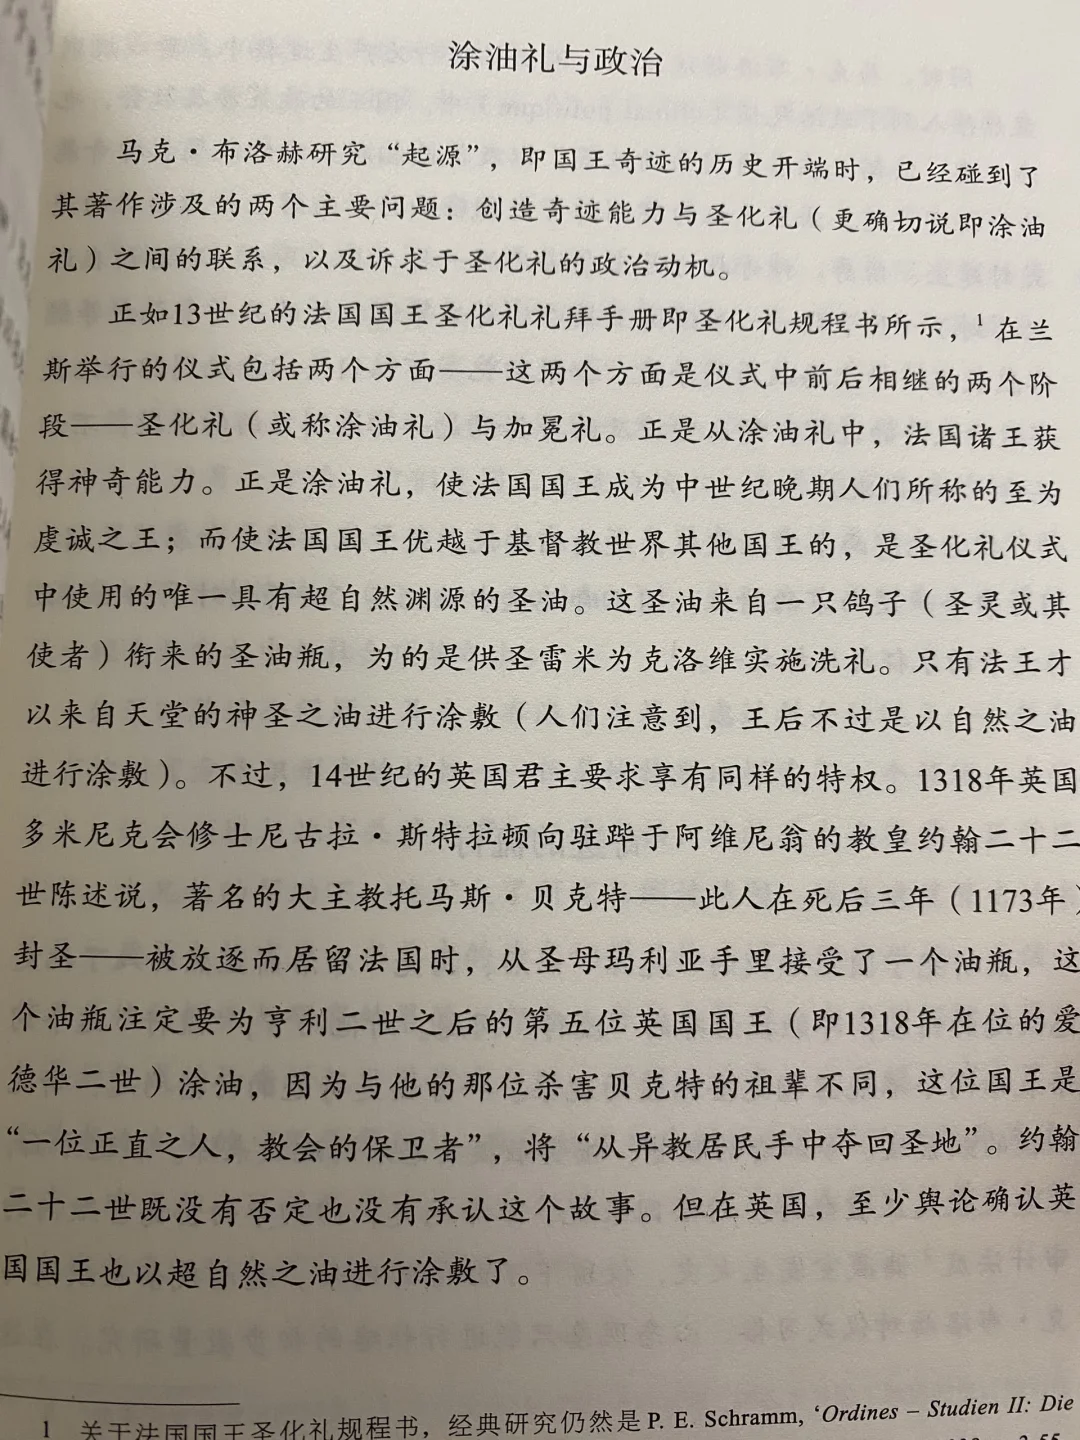 涂油礼与政治
马克·布洛赫研究“起源”，即国王奇迹的历史开端时，已经碰到了
其著作涉及的两个主要问题：创造奇迹能力与圣化礼（更确切说即涂油
礼）之间的联系，以及诉求于圣化礼的政治动机。
正如13世纪的法国国王圣化礼礼拜手册即圣化礼规程书所示，1 在兰
斯举行的仪式包括两个方面——这两个方面是仪式中前后相继的两个阶
段——圣化礼（或称涂油礼）与加冕礼。正是从涂油礼中，法国诸王获
得神奇能力。正是涂油礼，使法国国王成为中世纪晚期人们所称的至为
虔诚之王；而使法国国王优越于基督教世界其他国王的，是圣化礼仪式
中使用的唯一具有超自然渊源的圣油。这圣油来自一只鸽子（圣灵或其
使者）衔来的圣油瓶，为的是供圣雷米为克洛维实施洗礼。只有法王才
以来自天堂的神圣之油进行涂敷（人们注意到，王后不过是以自然之油
进行涂敷）。不过，14世纪的英国君主要求享有同样的特权。1318年英国
多米尼克会修士尼古拉·斯特拉顿向驻跸于阿维尼翁的教皇约翰二十二
世陈述说，著名的大主教托马斯·贝克特——此人在死后三年（1173年）
封圣——被放逐而居留法国时，从圣母玛利亚手里接受了一个油瓶，这
个油瓶注定要为亨利二世之后的第五位英国国王（即1318年在位的爱
德华二世）涂油，因为与他的那位杀害贝克特的祖辈不同，这位国王是
“一位正直之人，教会的保卫者”，将“从异教居民手中夺回圣地”。约翰
二十二世既没有否定也没有承认这个故事。但在英国，至少舆论确认英
国国王也以超自然之油进行涂敷了。
1 关于法国国王圣化礼规程书，经典研究仍然是P. E. Schramm, ‘Ordines – Studien II: Die